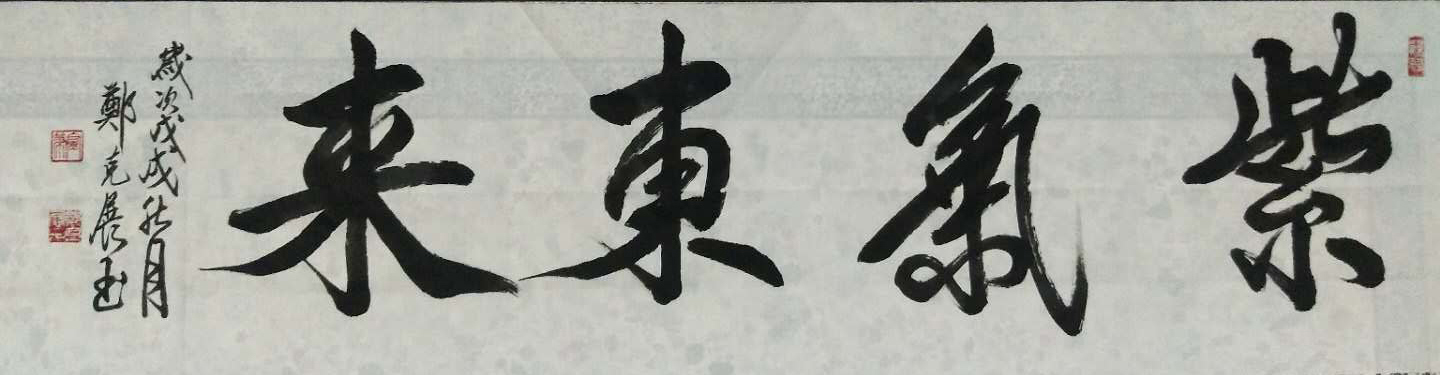 紫氣東来
歲次戊戌秋月
鄭克展書